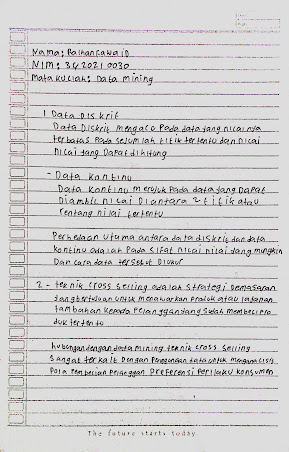 Nama: Raihan Jawaid
NIM: 3420210030
Mata kuliah: Data mining
1 Data Diskrit
Data Diskrit mengacu Pada data yang nilainya
terbatas Pada sejumlah titik tertentu dan nilai
nilai yang Dapat dihitung
- Data Kontinu
Data Kontinu merujuk Pada data yang Dapat
Diambil nilai Diantara 2 titik atau
rentang nilai tertentu
Perbedaan utama antara data diskrit dan data
kontinu adalah Pada sifat nilai nilai yang mungkin
Dan cara data tersebut Diukur
2 - teknik cross selling adalah strategi Pemasaran
yang bertujuan untuk menawarkan Produk atau layanan
tambahan kepada Pelanggan yang sudah membeli pro
duk tertentu
hubungan dengan data mining teknik cross selling
Sangat terkait Dengan Penggunaan data untuk menganalisis
Pola Pembelian Pelanggan Preferensi Perilaku konsumen
The future starts today